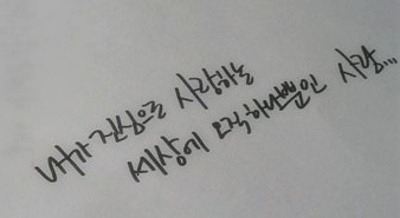 내가 진심으로 사랑하는
세상에 오직하나뿐인 사람...